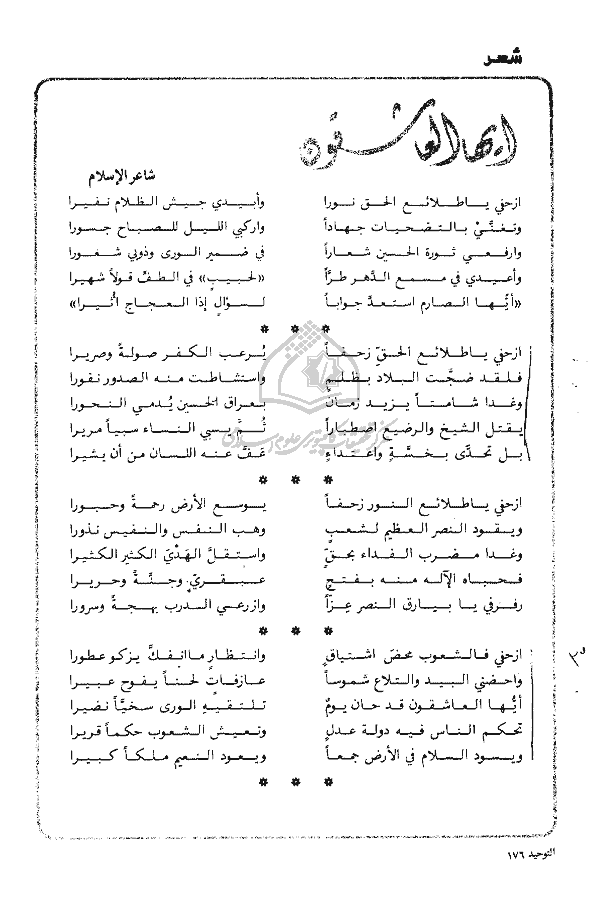 شعر
ايها العاشقون
شاعر الإسلام
ازحفي يا طلائع الحق نورا وأبيدي جيش الظلام نفيرا
وتغنَّيْ بالتضحيات جهاداً واركبي الليل للصباح جسورا
وارفعي ثورة الحسين شعاراً في ضمير الورى وذوبي شعورا
وأعيدي في مسمع الدّهر طرّاً «لحبيب» في الطفّ قولاً شهيرا
«أيّها الصارم استعدّ جواباً لسؤالٍ إذا العجاج أُثيرا»
* * *
ازحفي يا طلائع الحقّ زحفاً يُرعب الكفر صولةً وصريرا
فلقد ضجّت البلاد بظلمٍ واستشاطت منه الصدور نفورا
وغدا شامتاً يزيد زمان بعراق الحسين يُدمي النحورا
يقتل الشيخ والرضيع اصطباراً ثُمَّ يسبي النساء سبياً مريرا
بل تحدّى بخسّةٍ واعتداءٍ عَفَّ عنه اللسان من أن يشيرا
* * *
ازحفي يا طلائع النور زحفاً يوسع الأرض رحمةً وحبورا
ويقود النصر العظيم لشعبٍ وهب النفس والنفيس نذورا
وغدا مضرب الفداء بحقٍّ واستقلَّ الهَدْيَ الكثير الكثيرا
فحباه الآله منه بفتحٍ عبقريّ وجنّةً وحريرا
رفرفي يا بيارق النصر عِزّاً وازرعي الدرب بهجةً وسرورا
* * *
ازحفي فالشعوب محضَ اشتياقٍ وانتظارٍ ما انفكَّ يزكو عطورا
واحضني البيد والتلاع شموساً عازفاتٍ لحناً يفوح عبيرا
أيُّها العاشقون قد حان يومٌ تلتقيه الورى سخيّاً نضيرا
تحكم الناس فيه دولة عدلٍ وتعيش الشعوب حكماً قريرا
ويسود السلام في الأرض جمعاً ويعود النعيم ملكاً كبيرا
* * *
التوحيد ١٧٦